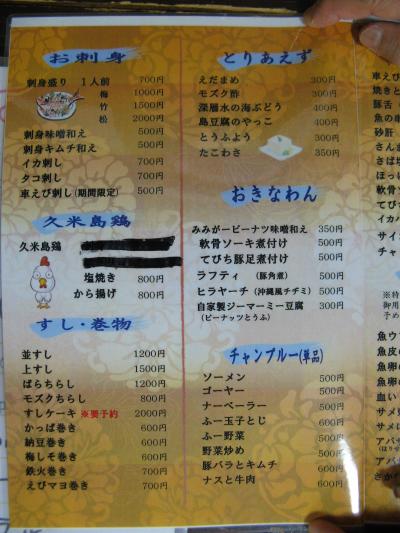 お刺身
刺身盛り 1人前 700円
梅 1000円
竹 1500円
松 2000円
刺身味噌和え 500円
刺身キムチ和え 500円
イカ刺し 700円
タコ刺し 700円
車えび刺し(期間限定) 500円
久米島鶏
久米島鶏
塩焼き 800円
から揚げ 800円
すし・巻物
並すし 1200円
上すし 1500円
ばらちらし 1200円
モズクちらし 800円
すしケーキ ※要予約 2000円
かっぱ巻き 600円
納豆巻き 600円
梅しそ巻き 600円
鉄火巻き 700円
えびマヨ巻き 700円
とりあえず
えだまめ 300円
モズク酢 300円
深層水の海ぶどう 400円
島豆腐のやっこ 400円
とうふよう 300円
たこわさ 350円
おきなわん
みみがーピーナツ味噌和え 350円
軟骨ソーキ煮付け 500円
てびち豚足煮付け 500円
ラフティ (豚角煮) 500円
ヒラヤーチ (沖縄風チヂミ) 500円
自家製ジーマーミー豆腐 300円
(ピーナッツとうふ)
チャンプルー(単品)
ソーメン 500円
ゴーヤー 500円
ナーベーラー 500円
ふー玉子とじ 600円
ふー野菜 500円
野菜炒め 500円
豚バラとキムチ 600円
ナスと牛肉 600円